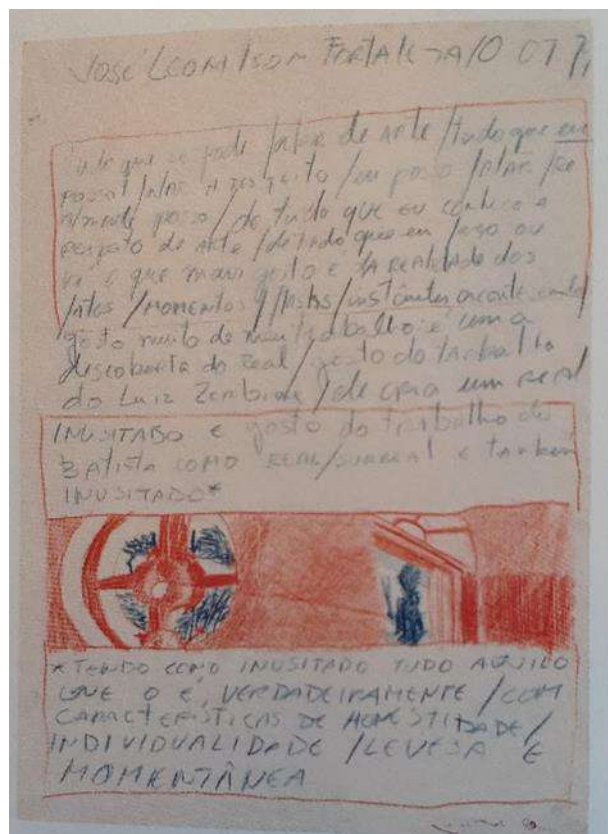 JOSÉ LEONILSON FORTALEZA/O 07
que se pode falar de arte / tudo que eu
posso falar a respeito / eu posso falar / re
almente posso / de tudo que eu conheço a
respeito de arte / de tudo que eu faço ou
vi o que mais gosto é da realidade dos
fatos / MOMENTOS / / instantes
gosto muito de meu trabalho é uma
descoberta do real / gosto do trabalho
do Luiz Zerbini / de cria um real
INUSITADO e gosto do trabalho do
Batista COMO REAL/SURREAL e também
INUSITADO*
*TENDO COMO INUSITADO TUDO AQUILO
QUE O É, VERDADEIRAMENTE / COM
CARACTERÍSTICAS DE HONESTIDADE /
INDIVIDUALIDADE / LEVEZA E
MOMENTÂNEA